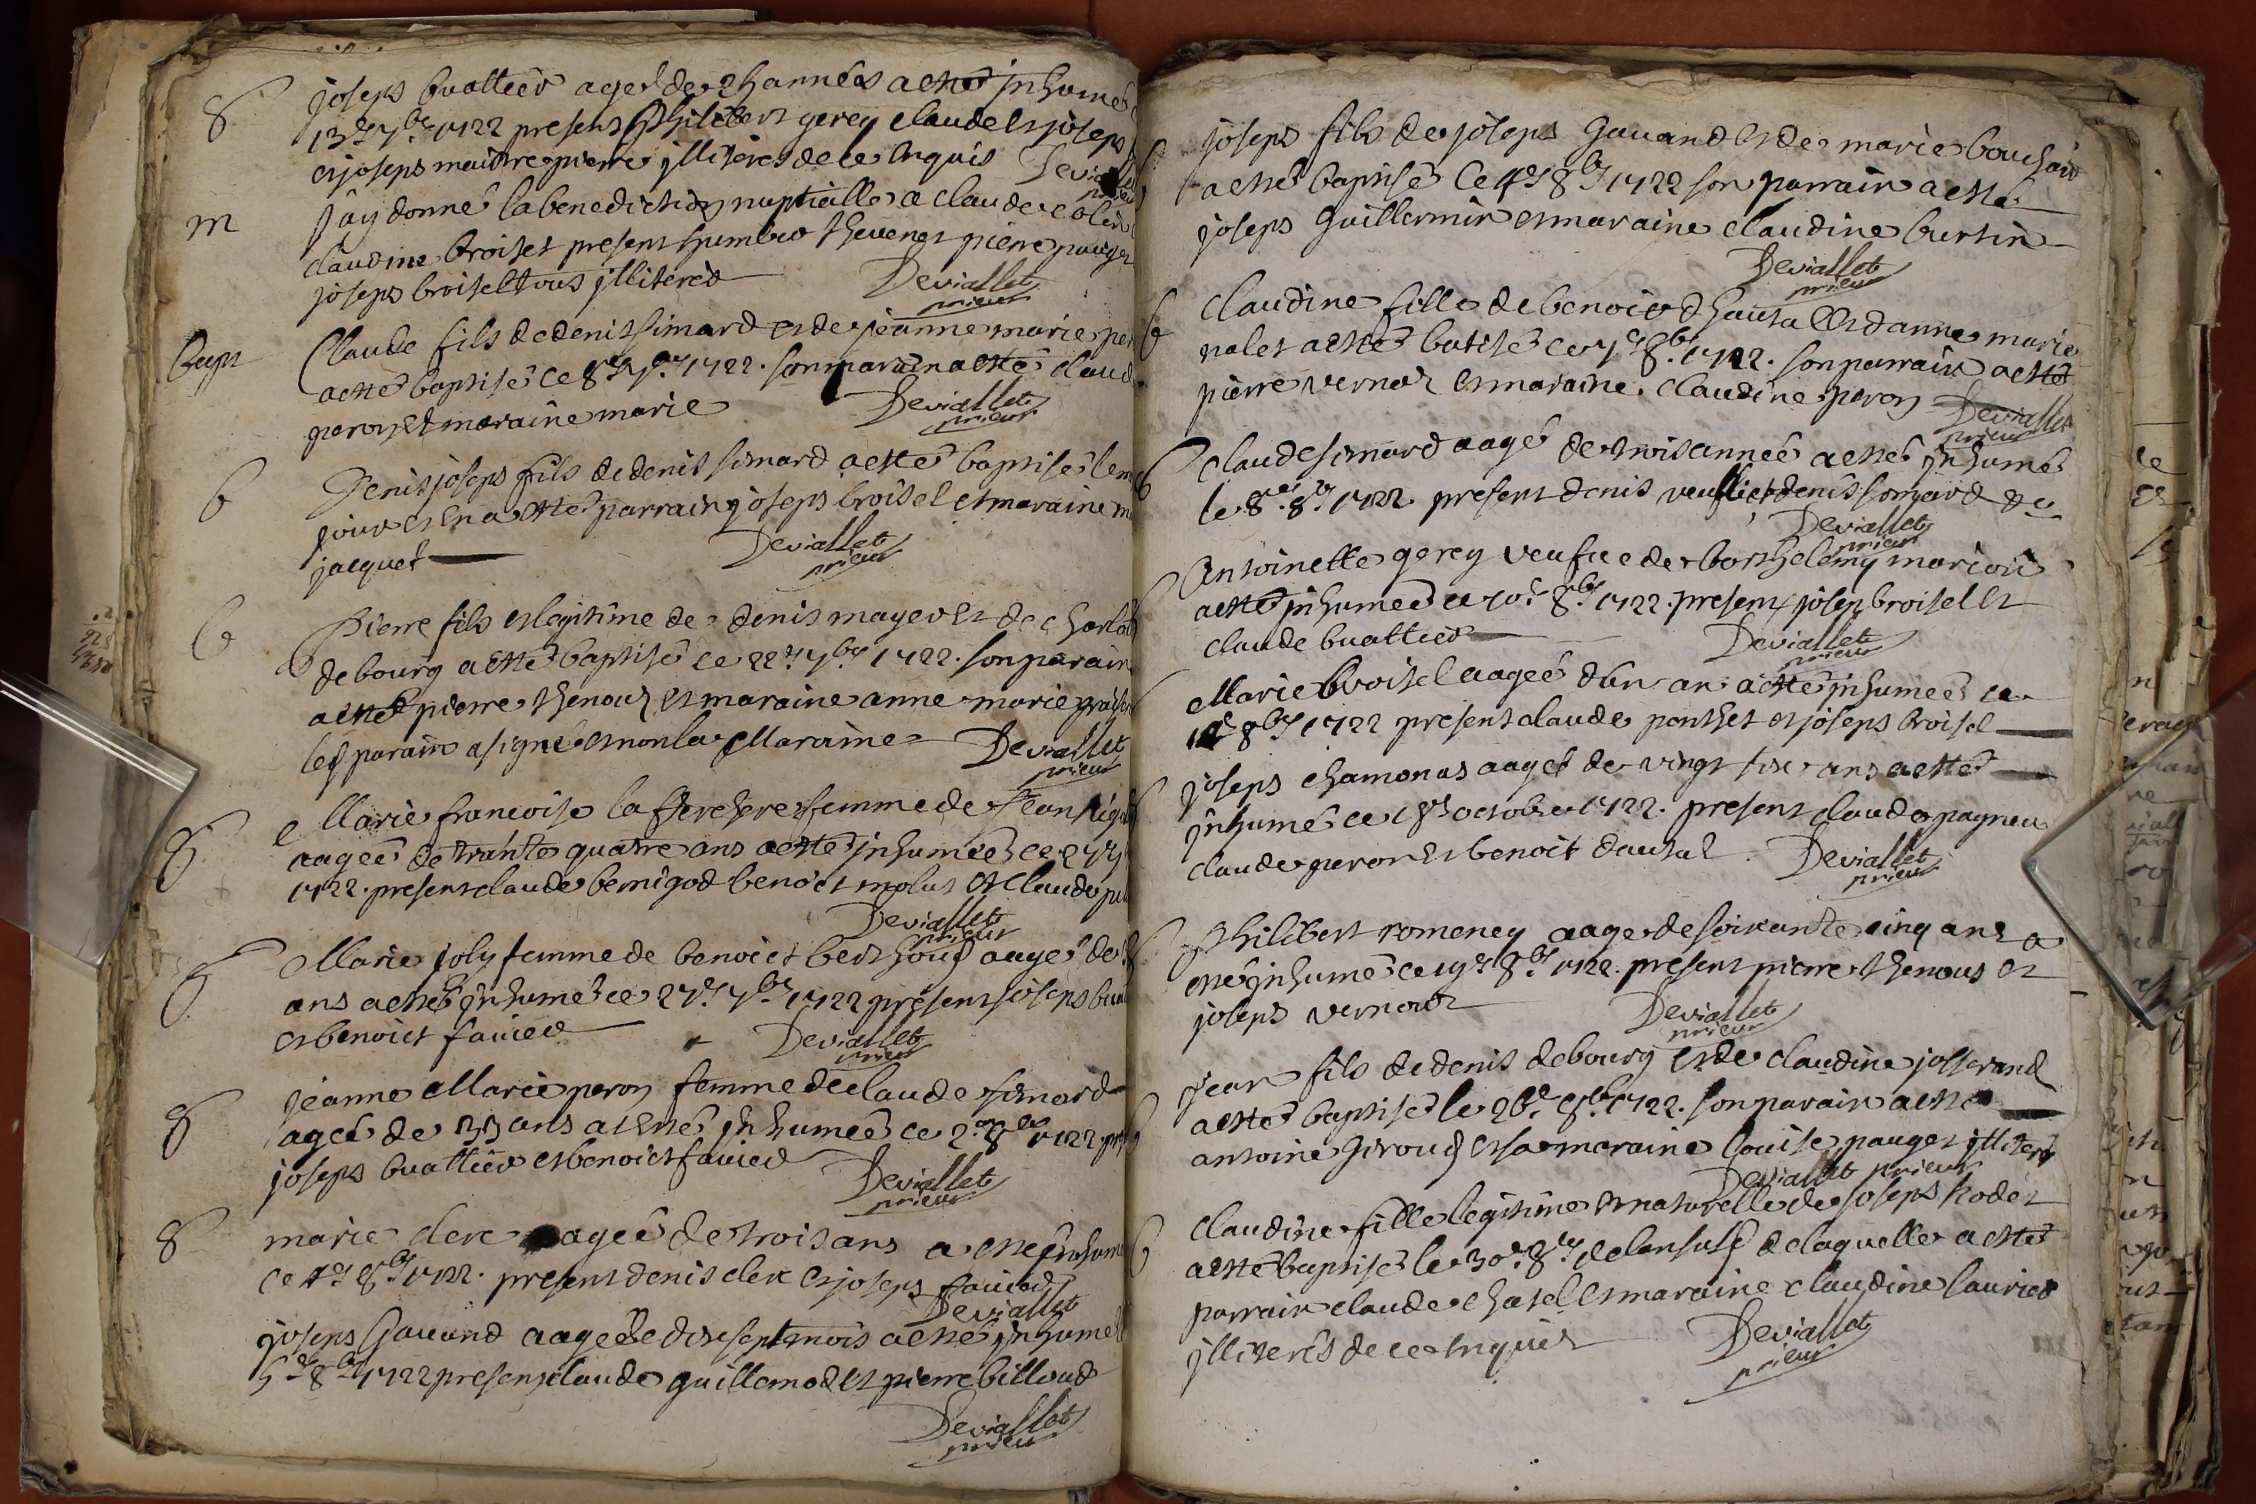 S
joseps buattier agé de 2h années a esté jnhumé
13e 7bre 1722 presens philibert gerey claude et joseps
et joseps maistre pierre jlliterés de ce enquis Deviallet
prieur
m
J'ay donné la benediction nuptialle a claude colin
claudine broiset present humber thevenet pierre pauget
joseps broisel tous jlliterés Deviallet
prieur
Bapt
Claude fils de denis simard et de jeanne marie per
a esté baptisé ce 8e 7bre 1722. son parain a esté claud
peron et maraine marie Deviallet
prieur
b
Denis joseps fils de denis simard a esté baptisé le me
jour et en a esté parrain joseps broisel et maraine m
jacquet Deviallet
prieur
b
Pierre fils et legitime de denis mayer et de charlo
de bourg a esté baptisé ce 22e 7bre 1722. son parain
a esté pierre thenoud et maraine anne marie
led parain a signé et non la Maraine Deviallet
prieur
S
Marie francoise la femme de Jean
aagée de trante quatre ans a esté jnhumée ce 27
1722. present claude bernigod benoict molut et claude
Deviallet
prieur
S
Marie joly femme de benoict berthoud aagée de
ans a esté jnhumée ce 27e 7bre 1722 present joseps bua
et benoict favier Deviallet
prieur
S
jeanne Marie peron femme de claude simard
agée de 33 ans a esté jnhumée ce 2e 8bre 1722 pr
joseps buattier et benoict favier Deviallet
prieur
S
marie clerc agée de trois ans a esté jnhumé
ce 4e 8bre 1722. present denis clerc et joseps favier
Deviallet
joseps Gavand aagé de dix sept mois a esté jnhumé
5e 8bre 1722 present claude guillemod et pierre billoud
Deviallet
prieur
b
joseps fils de joseps Gavand et de marie bouchard
a esté baptisé ce 4e 8bre 1722 son parrain a esté
joseps Guillermin et maraine claudine burtin
Deviallet
prieur
b
Claudine fille de benoict dhautal et d'anne marie
nalet a esté batisé ce 7e 8bre 1722. son parrain a esté
pierre vernoux et maraine claudine peron Deviallet
prieur
Claude simard aagé de trois année a esté jnhumé
le 8e 8bre 1722 present denis denis somard
Deviallet
prieur
Antoinette gerey veufve de barthelemy
a esté jnhumée ce 10e 8bre 1722. present josep broisel et
claude buattier Deviallet
prieur
Marie broisel aagée d'un an a esté jnhumée ce
8bre 1722 present claude ponthet et joseps broisel
joseps chamonas aagé de vingt six ans a esté
jnhumé ce 18e octobre 1722. present claude pagneu
claude peron et benoit dautal Deviallet
prieur
Philibert romeney aagé de soixante cinq ans a
esté jnhumé ce 19e 8bre 1722. present pierre thenoud et
joseps vernoux Deviallet
prieur
jean fils de denis debourg et de claudine josserand
a esté baptisé le 26e 8bre 1722. son parain a esté
antoine Giroud et sa maraine louise pauget jlliterés
Deviallet prieur
b
claudine fille legitime et naturelle de joseps
a esté baptisé le 30e 8bre de lan susd de laquelle a esté
parrain claude chasel et maraine claudine laurier
jlliterés de ce enquis Deviallet
prieur